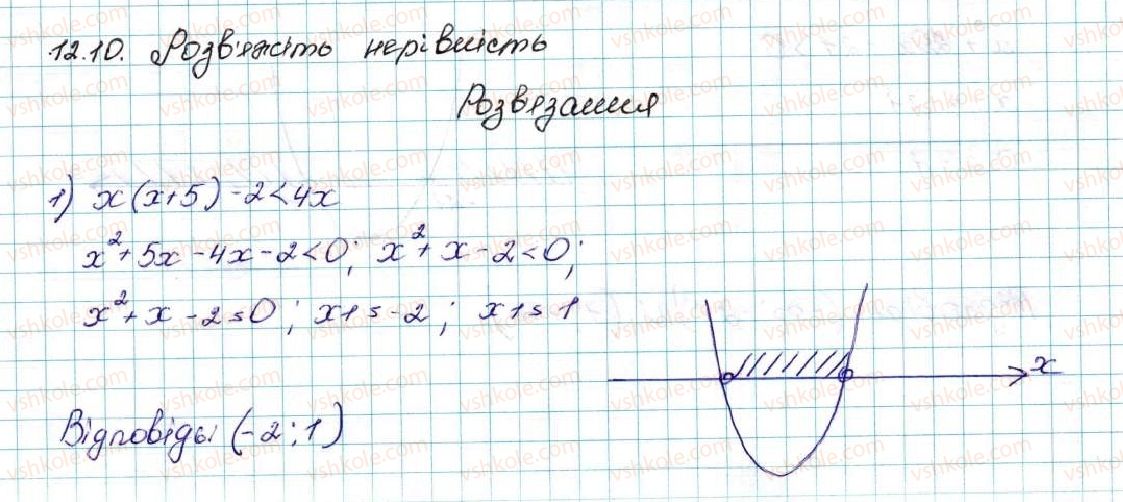 12.10. Розв'яжіть нерівність
Розв'язання
1) x(x+5)-2<4x
x²+5x-4x-2<0; x²+x-2<0;
x²+x-2=0; x1=-2; x1=1
x
Відповідь: (-2;1)